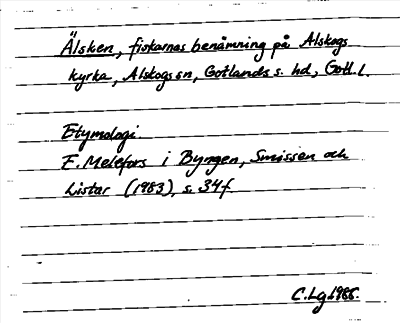 Älsken, fiskarnas benämning på Alskogs
kyrka, Alskogs sn, Gotlands s. hd, Gotl. l.
Etymologi.
E. Melefors i Byngen, Smissen och
Listar (1983), s. 34f.
C. Lg 1988.